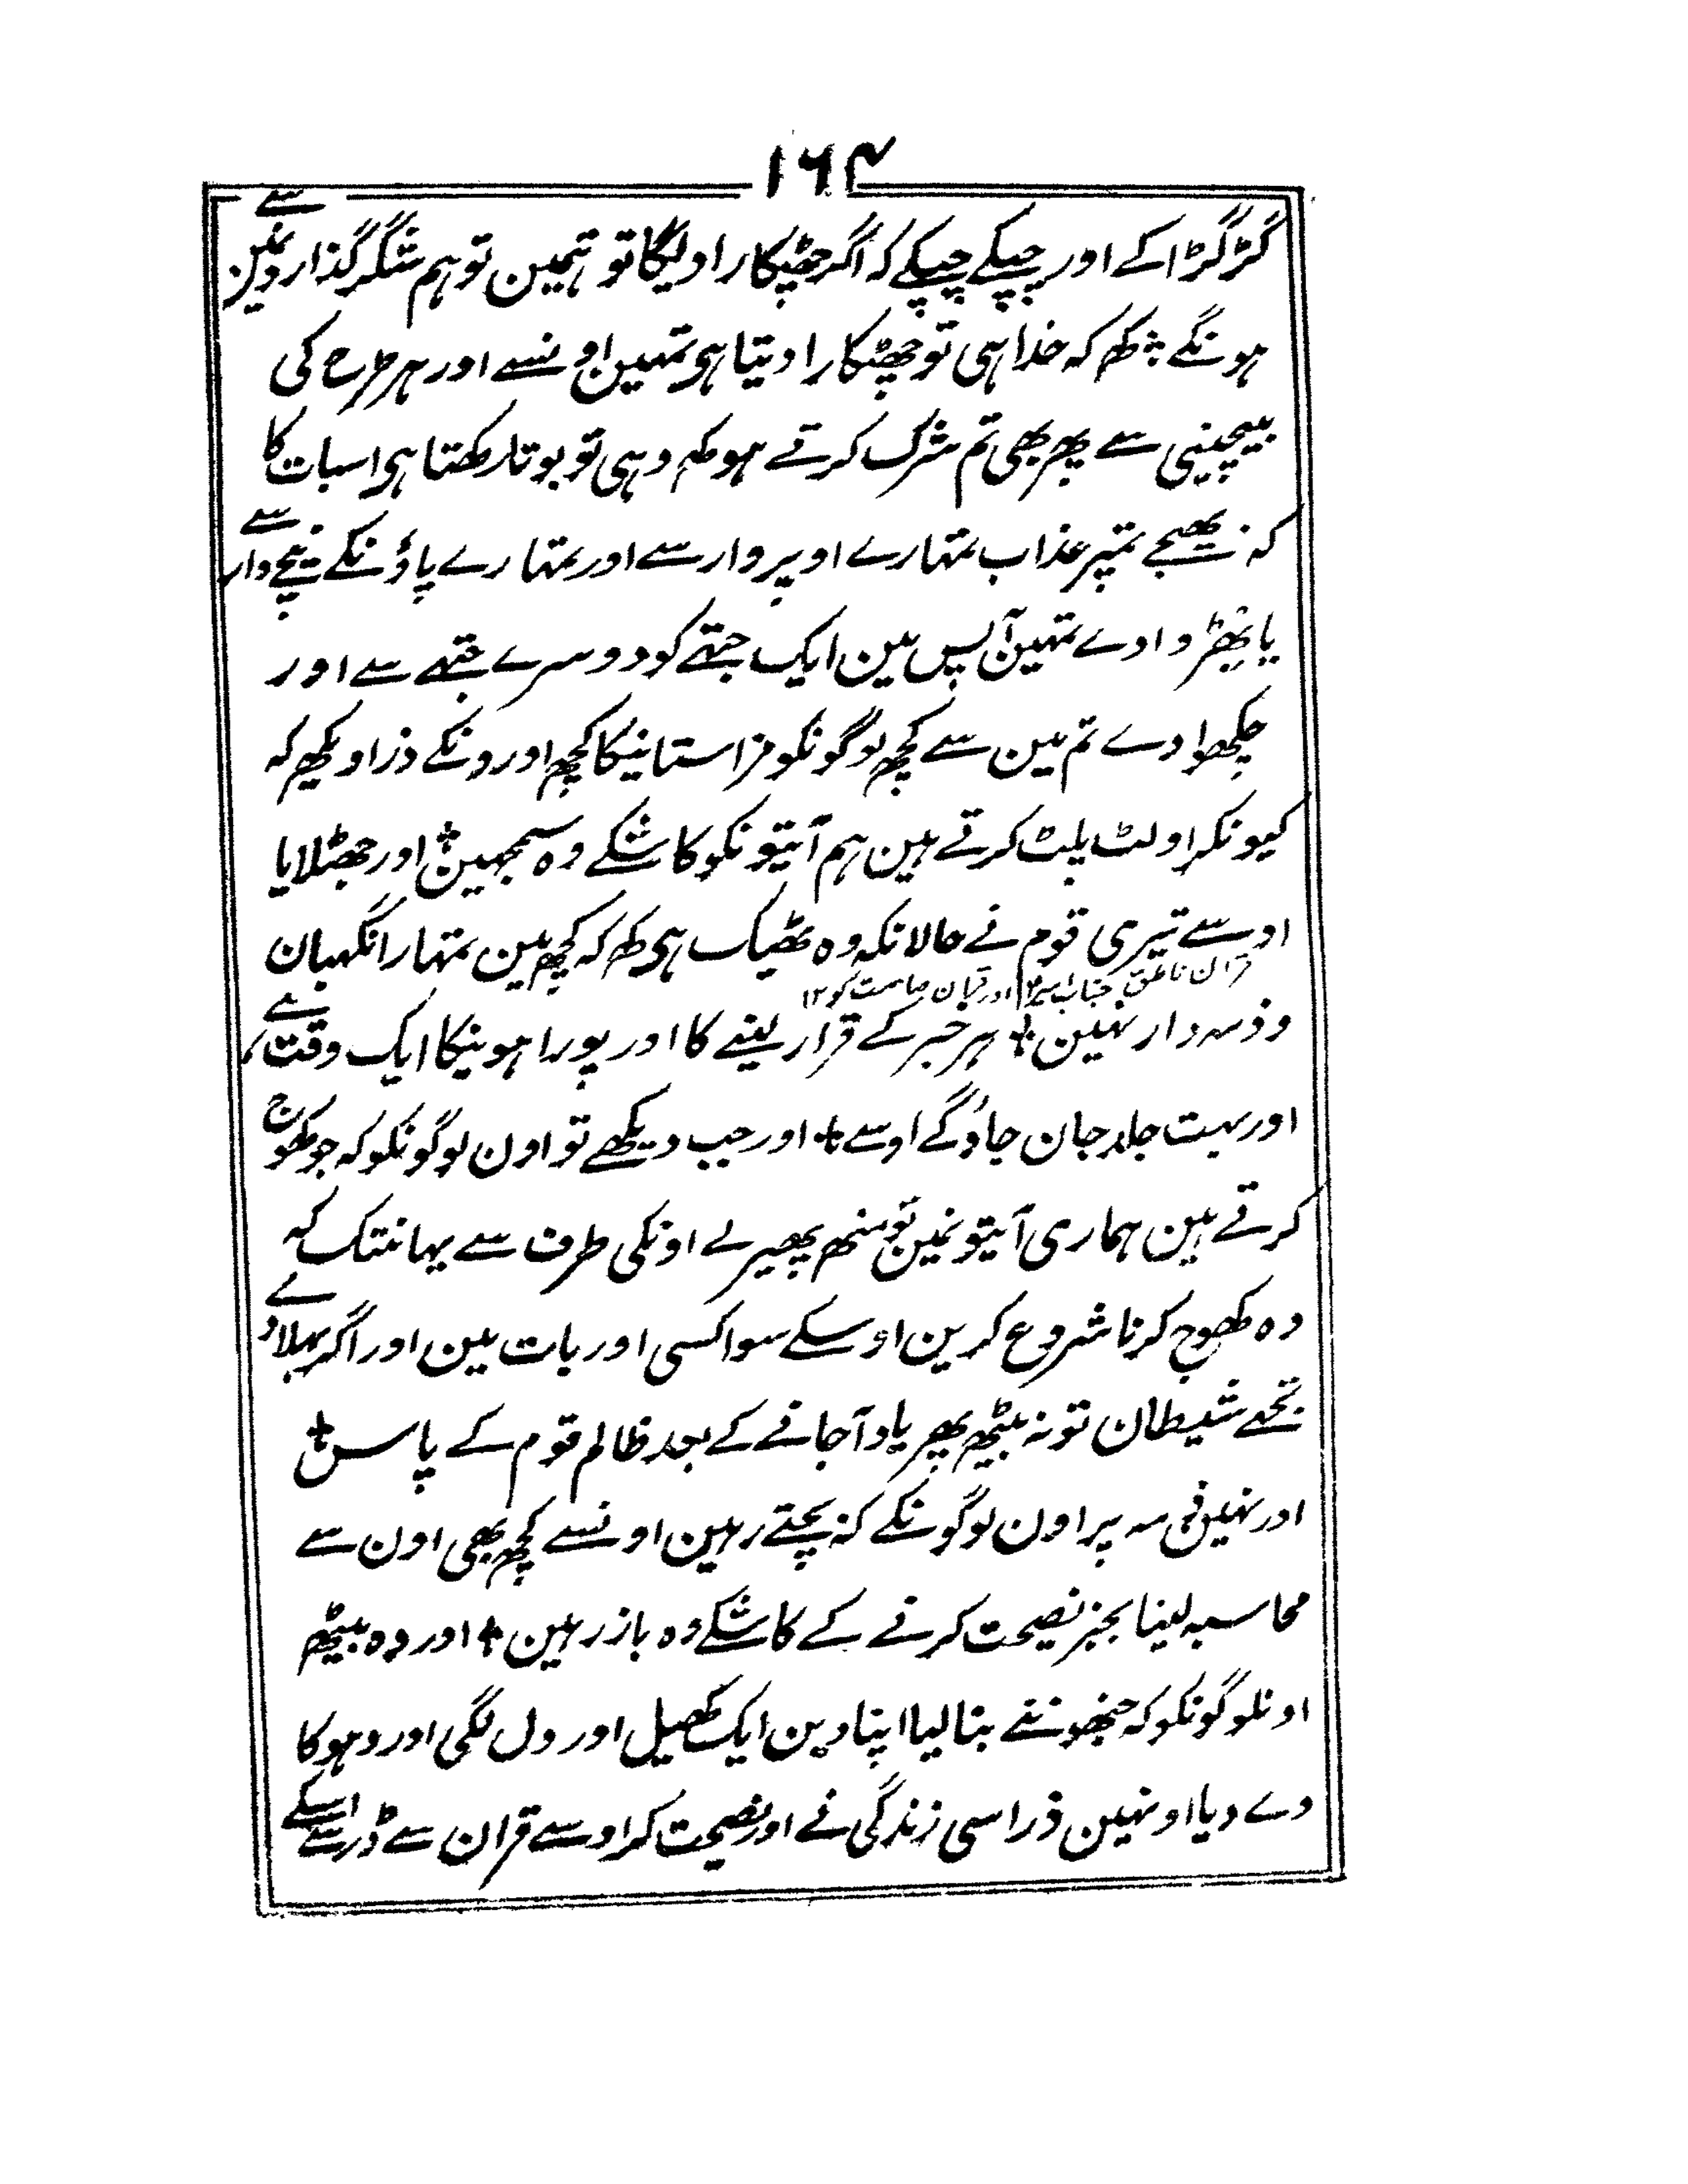 ۱۶۴
گڑگڑا کے اور چپکے چپکے کہ اگر چھٹکارا دیگا تو ہمین تو ہم شکر گذارونمین سے
ہونگے ÷ کھ کہ خدا ہی تو چھٹکارا دیتا ہی تمھین اونسے اور ہر طرح کی
بیچینی سے پھر بھی تم شرک کرتے ہو کھ وہی تو بوتا رکھتا ہی اسبات کا
کہ بھیجے تمپر عذاب تمہارے اوپر وار سے اور تمہارے پاؤنکے نیچے وار سے
یا بھڑوا دے تمہین آپس مین ایک جتھے کو دوسرے جتھے سے اور
چکھوا دے تم مین سے کچھ لوگونکو مزا ستانیکا کچھ اورونکے ذرا دیکھ کہ
کیونکر اولٹ پلٹ کرتے ہین ہم آیتونکو کاشکے وہ سمجھین ÷ اور جھٹلایا
اوسے تیری قوم نے حالانکہ وہ ٹھیک ہی کھ کہ کچھ مین تمہارا نگہبان
قران ناطق جناب امیر اور قران صامت کو ۱۲
و ذمہ دار نہین ÷ ہر خبر کے قرار لینے کا اور پورا ہونیکا ایک وقت ہے
اور بہت جلد جان جاؤگے اوسے ÷ اور جب دیکھے تو اون لوگونکو کہ جو کھوج
کرتے ہین ہماری آیتونمین تو منھ پھیر لے اونکی طرف سے یہانتک کہ
وہ کھوج کرنا شروع کرین اوسکے سوا کسی اور بات مین اور اگر بہلا دے
تجھے شیطان تو نہ بیٹھ پھر یاد آجانے کے بعد ظالم قوم کے پاس ÷
اور نہین ذمہ پر اون لوگونکے کہ بچتے رہین اونسے کچھ بھی اون سے
محاسبہ لینا بجز نصیحت کرنے کے کاشکے وہ باز رہین ÷ اور وہ بیٹھ
اونلوگونکو کہ جنھونے بنا لیا اپنا دین ایک کھیل اور دل لگی اور دہوکا
دے دیا اونہین ذرا سی زندگی نے اور نصیحت کر اوسے قران سے ڈر سے اسکے